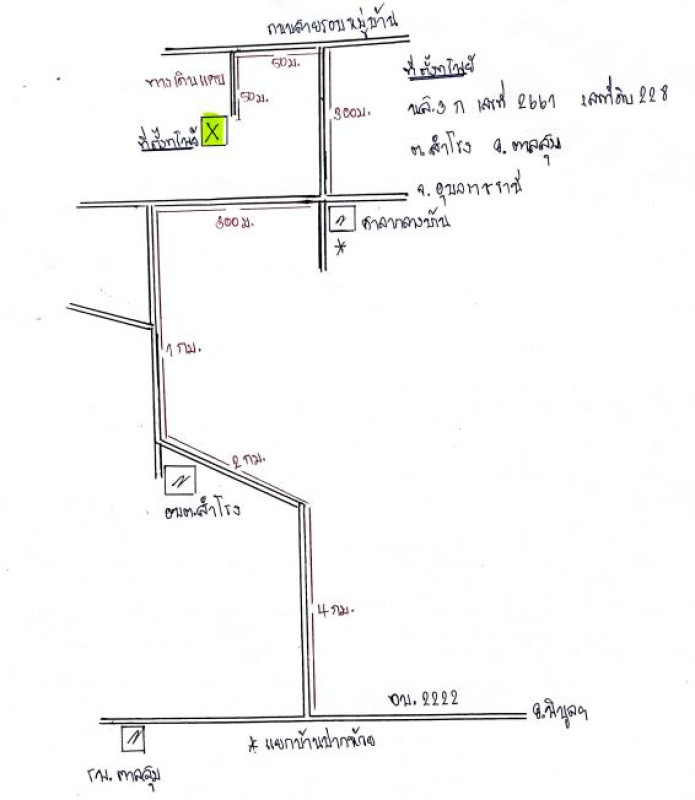 ถนนสายรอบหมู่บ้าน
50 ม.
ทางเดินแคบ
50 ม.
300 ม.
ที่ตั้งทรัพย์
X
ที่ตั้งทรัพย์
น.ส.3 ก เลขที่ 2661 เลขที่ดิน 228
ต.สำโรง อ.ตาลสุม
จ.อุบลราชธานี
300 ม.
ศาลากลางบ้าน
*
1 กม.
2 กม.
อบต.สำโรง
4 กม.
อบ. 2222
อ.พิบูลฯ
* แยกบ้านปากห้วย
รพ. ตาลสุม